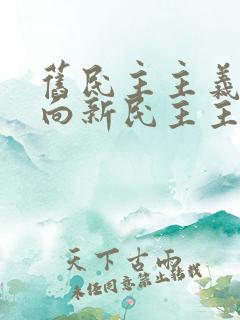 舊民主主義
向新民主主
天下古雨
未经同意禁止转载